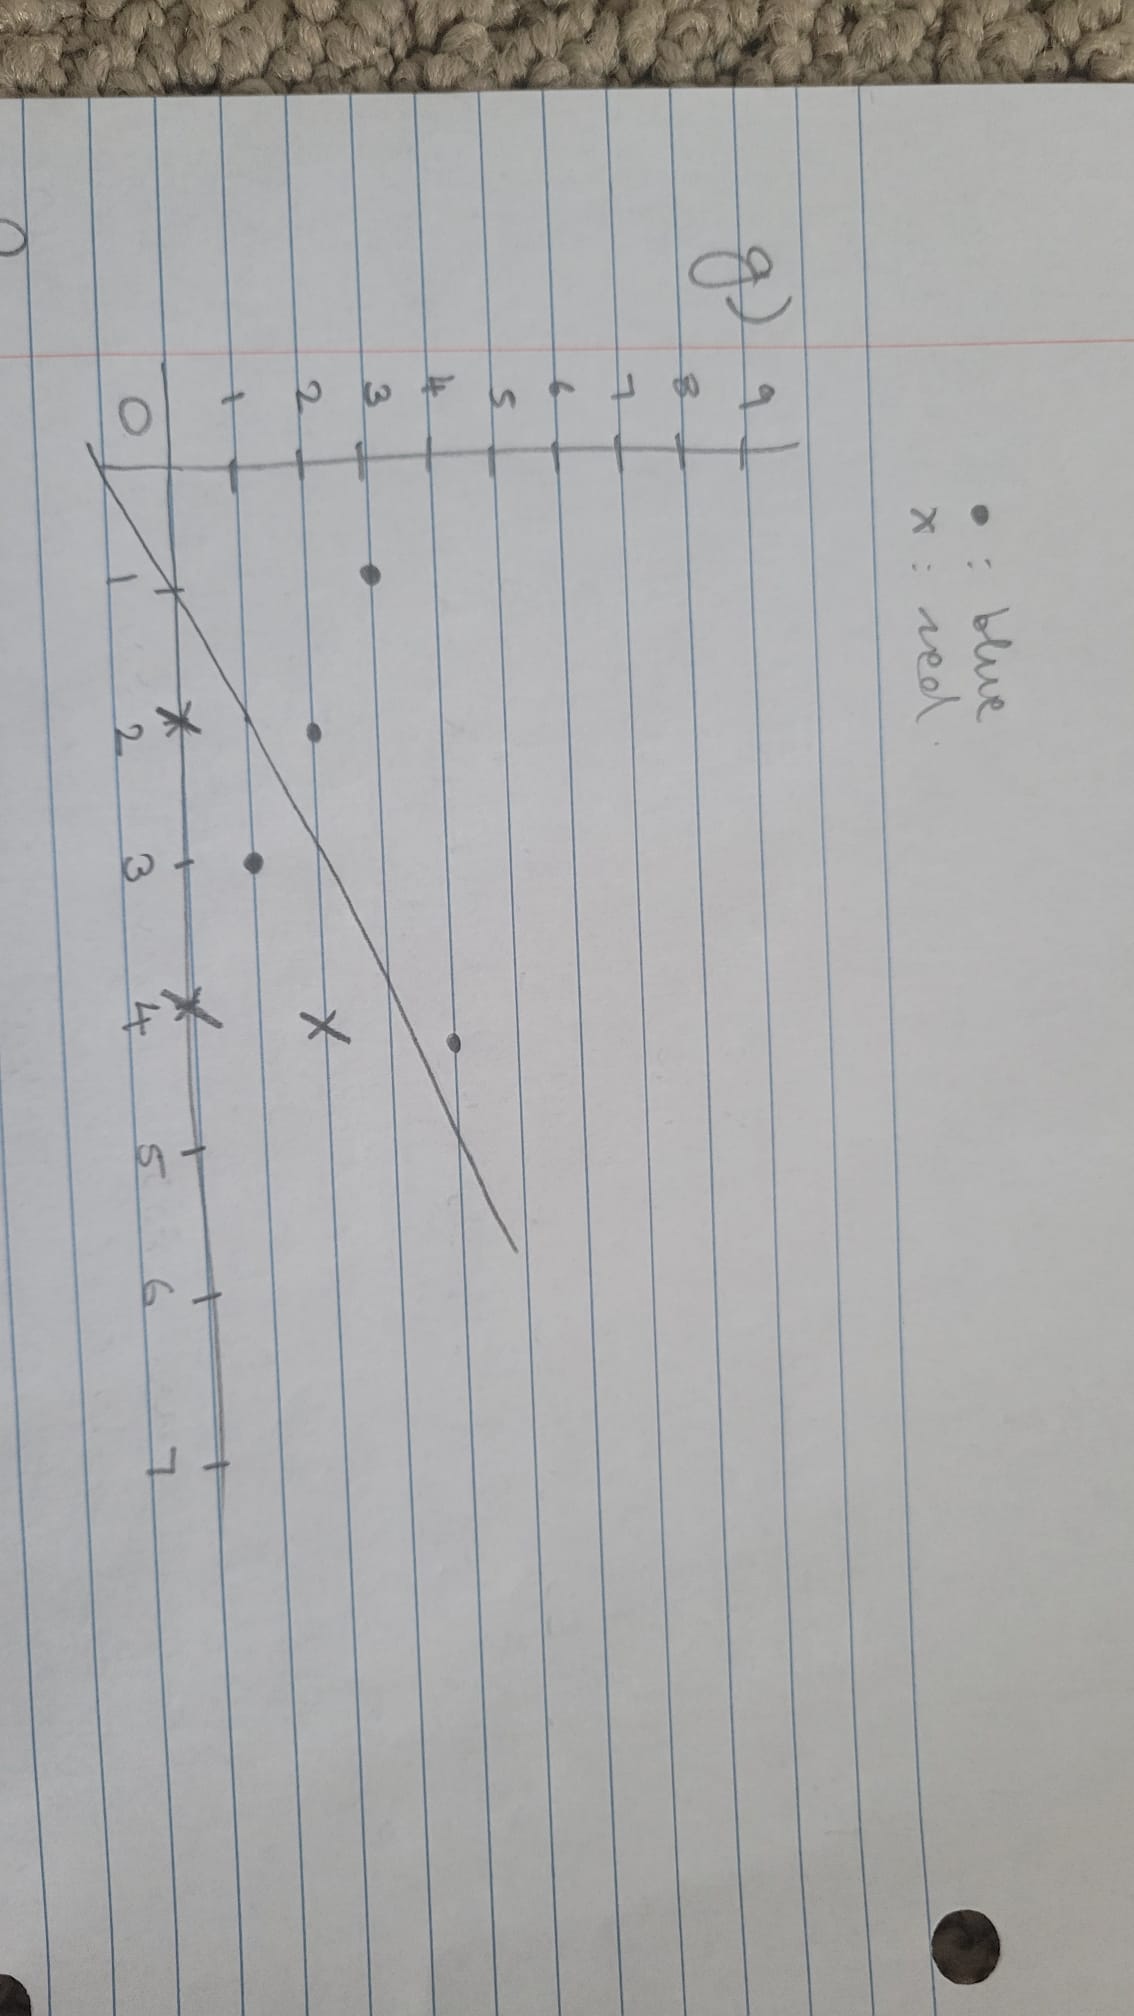 • : blue
x : red.
g)
9
8
7
6
5
4
3
2
1
0
1 2 3 4 5 6 7